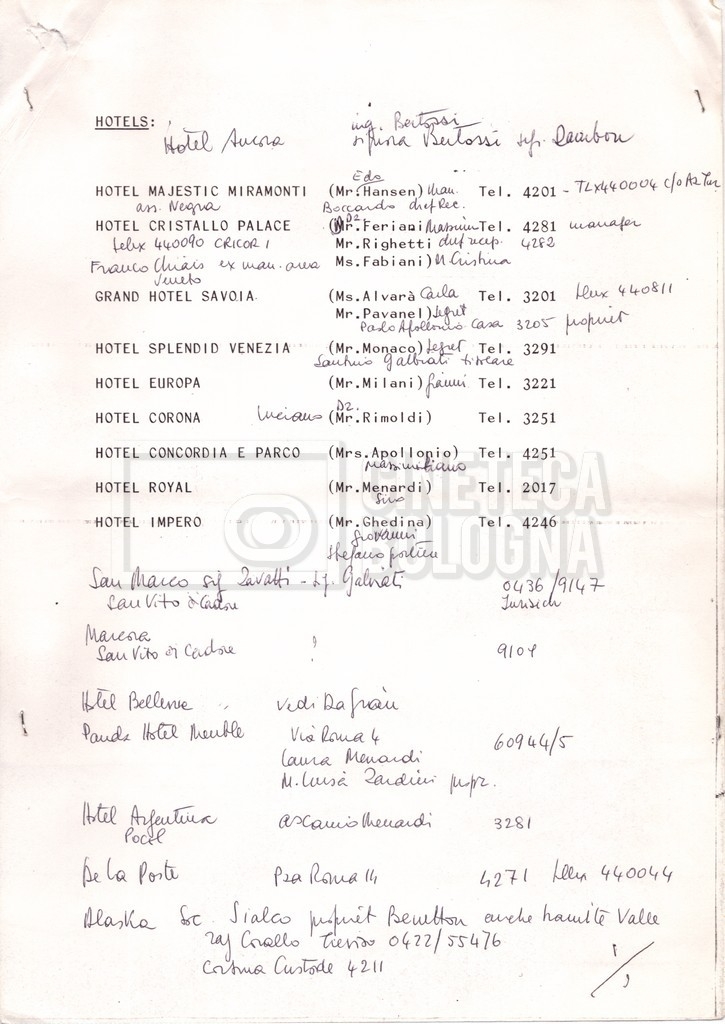 HOTELS:
Hotel Ancora ing. Bertossi
signora Bertossi
Edo
HOTEL MAJESTIC MIRAMONTI (Mr. Hansen) Man. Tel. 4201 - TLX 440004 c/o
ass. Negra Boccardo
HOTEL CRISTALLO PALACE Feriani Massimo Tel. 4281 manager
telex 440090 CRICOR I Mr. Righetti 4282
Franco ex man. area Ms. Fabiani) M. Cristina
Veneto
GRAND HOTEL SAVOIA (Ms. Alvarà Carla Tel. 3201 tlex 440811
Mr. Pavanel) Segret
Paolo Apollonio casa 3205 propriet
HOTEL SPLENDID VENEZIA (Mr. Monaco) Segret Tel. 3291
Galbiati
HOTEL EUROPA (Mr. Milani) Gianni Tel. 3221
HOTEL CORONA Luciano (Mr. Rimoldi) Tel. 3251
HOTEL CONCORDIA E PARCO (Mrs. Apollonio) Tel. 4251
Massimiliano
HOTEL ROYAL (Mr. Menardi) Tel. 2017
Siro
HOTEL IMPERO (Mr. Ghedina) Tel. 4246
Giovanni
Stefano portiere
San Marco sig Zavatti - Galbiati 0436/9147
San Vito di Cadore
Marcora ! 9104
San Vito di Cadore
Hotel Bellevue vedi
Panda Hotel Meublè Via Roma 4 60944/5
Laura Menardi
M. Luisa Zardini propr.
Hotel Argentina Ascanio Menardi 3281
Pocol
De La Poste Pza Roma 14 4271 tlex 440044
Alaska Soc Sialco propriet Benetton anche tramite Valle
rag Corallo Treviso 0422/55476
Cortina Custode 4211
CINETECA
BOLOGNA